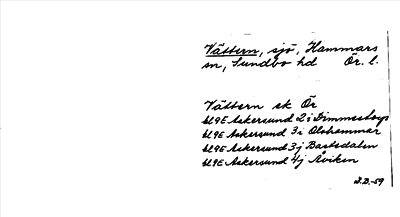 Vättern, sjö, Hammars
sn, Sundbo hd Ör. l.
Vättern ek Ör
bl9E Askersund 2i Dimmestorp
bl9E Askersund 3i Olshammar
bl9E Askersund 3j Bastedalen
bl9E Askersund 4j Åviken
J.D.-59